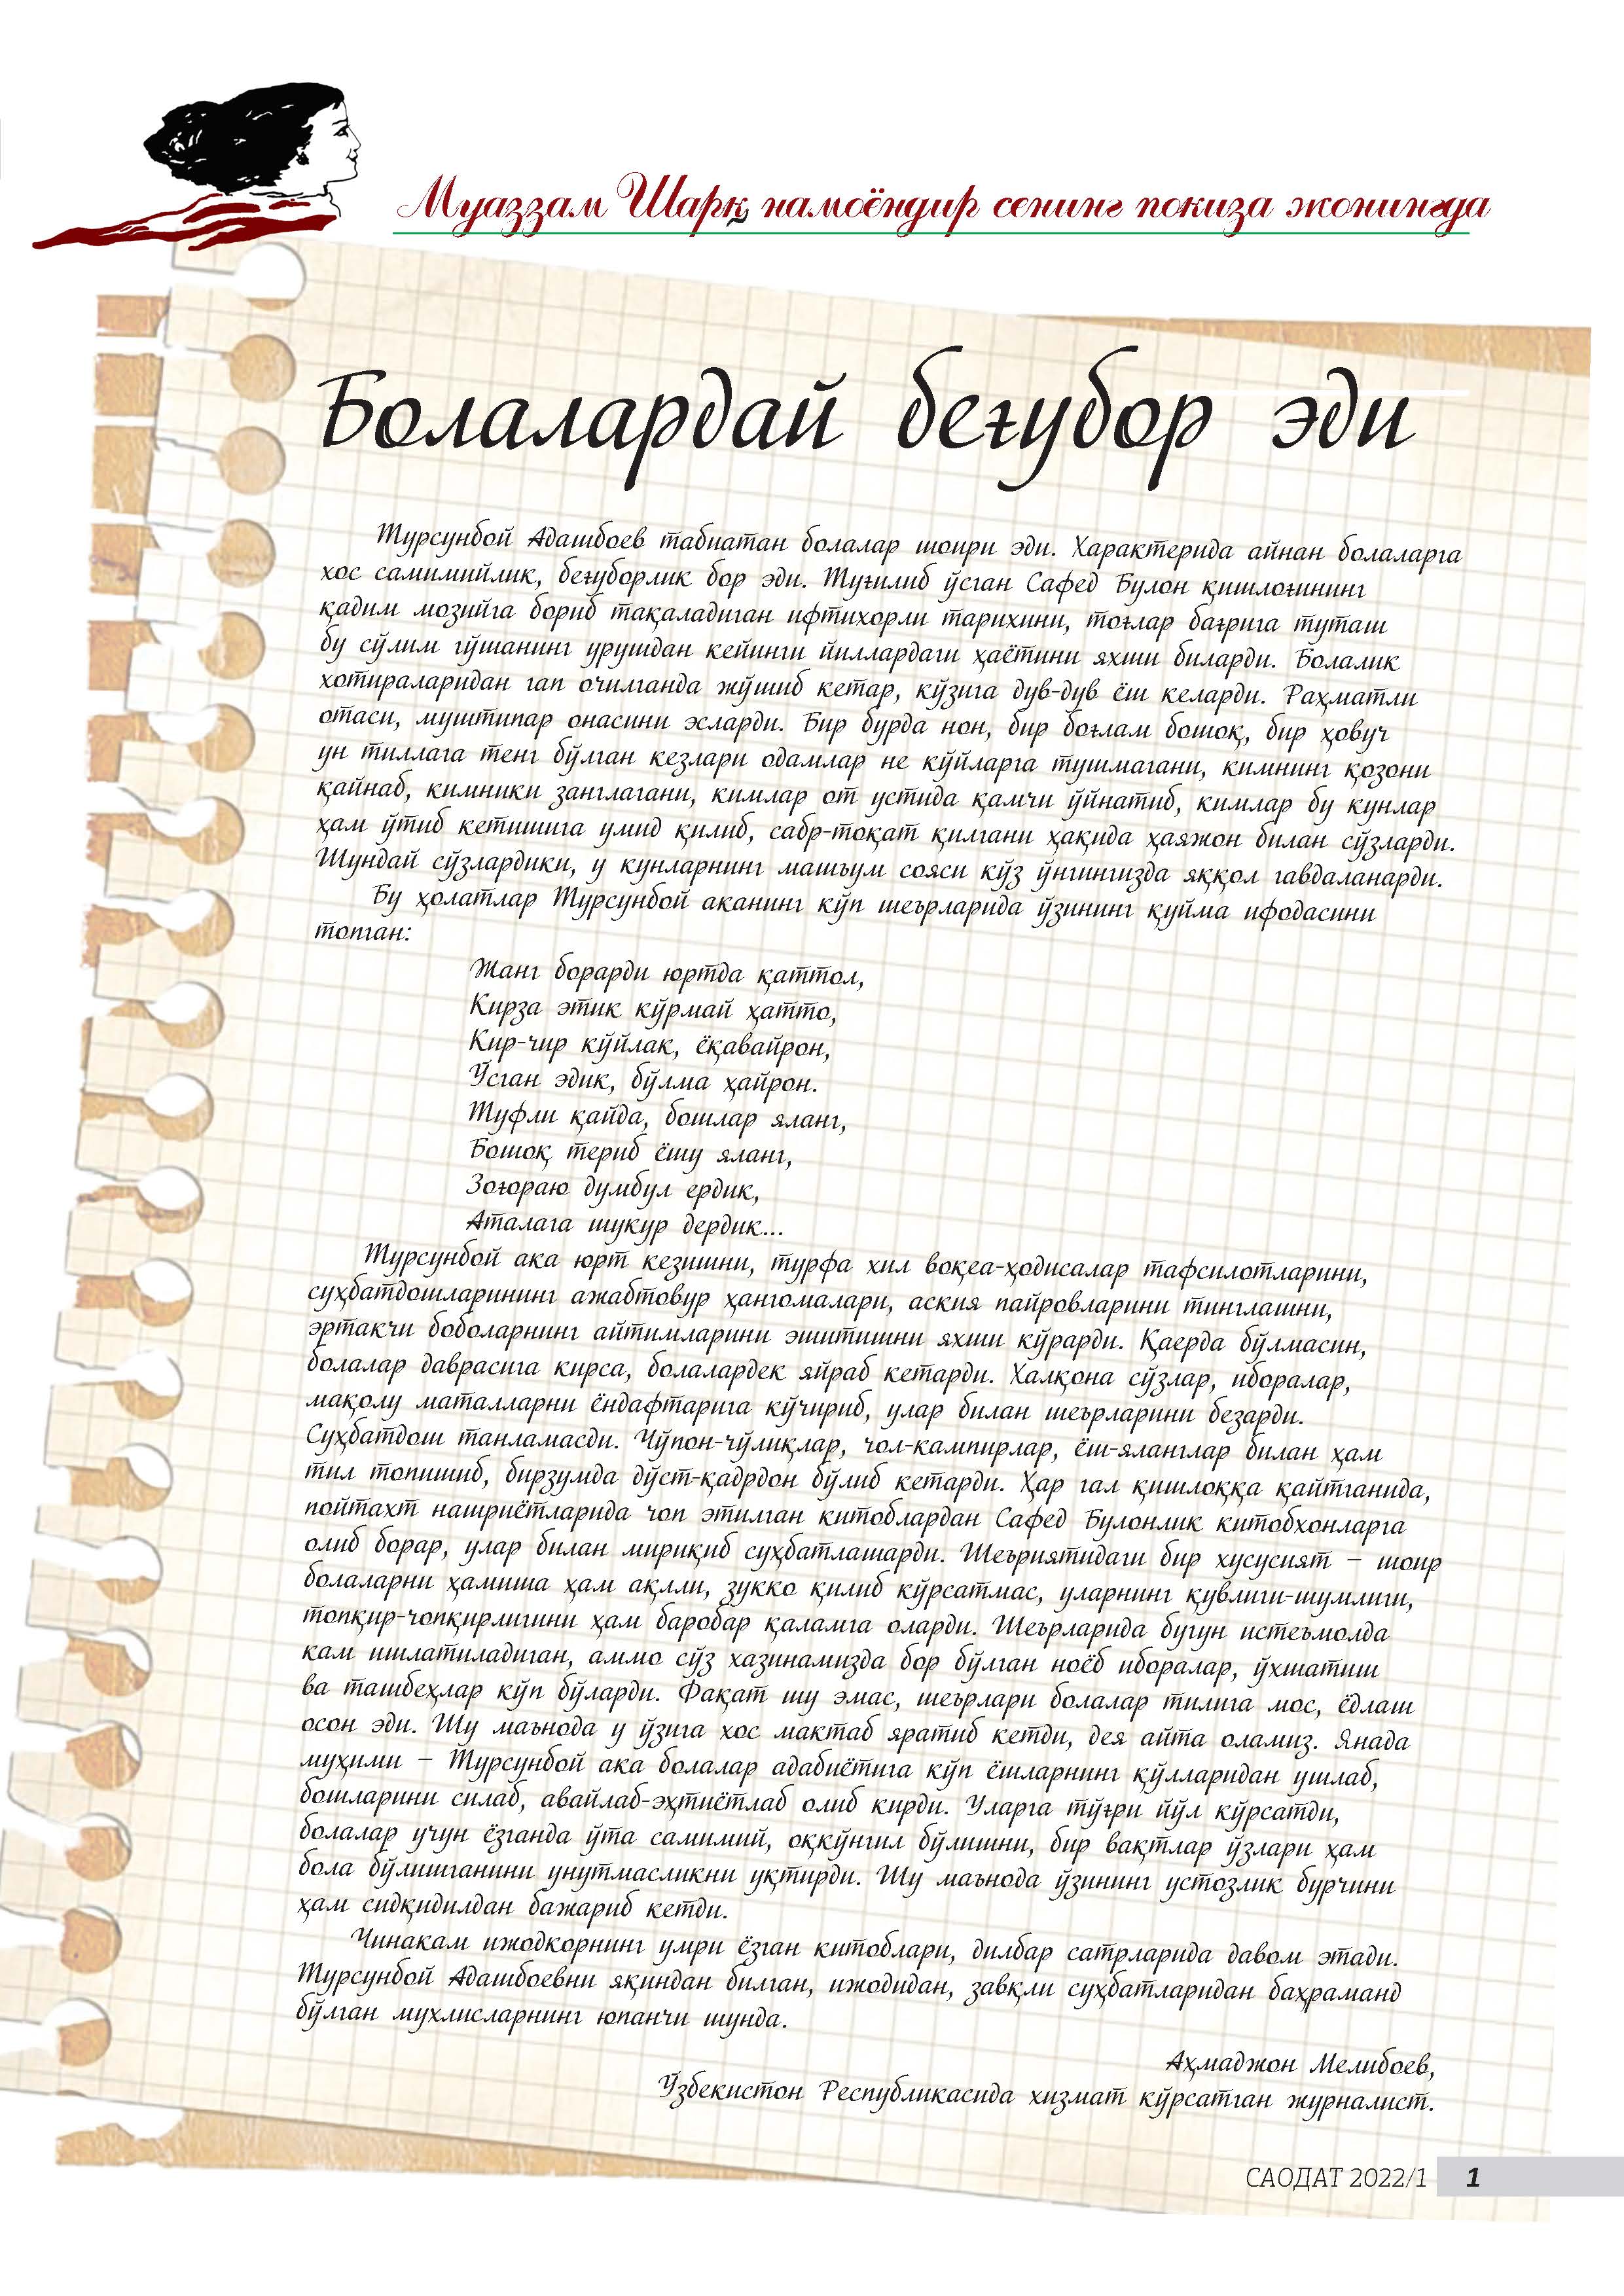 Муаззам Шарқ намоёндир сенинг покиза жонингда
Болалардай беғубор эди
Турсунбой Адашбоев табиатан болалар шоири эди. Характерида айнан болаларга
хос самимийлик, беғуборлик бор эди. Туғилиб ўсган Сафед Булон қишлоғининг
қадим мозийга бориб тақаладиган ифтихорли тарихини, тоғлар бағрига туташ
бу сўлим гўшанинг урушдан кейинги йиллардаги ҳаётини яхши биларди. Болалик
хотираларидан гап очилганда жўшиб кетар, кўзига дув-дув ёш келарди. Раҳматли
отаси, муштипар онасини эсларди. Бир бурда нон, бир боғлам бошоқ, бир ҳовуч
ун тиллага тенг бўлган кезлари одамлар не кўйларга тушмагани, кимнинг қозони
қайнаб, кимники занглагани, кимлар от устида қамчи ўйнатиб, кимлар бу кунлар
ҳам ўтиб кетишига умид қилиб, сабр-тоқат қилгани ҳақида ҳаяжон билан сўзларди.
Шундай сўзлардики, у кунларнинг машъум сояси кўз ўнгингизда яққол гавдаланарди.
Бу ҳолатлар Турсунбой аканинг кўп шеърларида ўзининг қуйма ифодасини
топган:
Жанг борарди юртда қаттол,
Кирза этик кўрмай ҳатто,
Кир-чир кўйлак, ёқавайрон,
Ўсган эдик, бўлма ҳайрон.
Туфли қайда, бошлар яланг,
Бошоқ териб ёшу яланг,
Зоғораю думбул ердик,
Аталага шукур дердик...
Турсунбой ака юрт кезишни, турфа хил воқеа-ҳодисалар тафсилотларини,
суҳбатдошларининг ажабтовур ҳангомалари, аския пайровларини тинглашни,
эртакчи боболарнинг айтимларини эшитишни яхши кўрарди. Қаерда бўлмасин,
болалар даврасига кирса, болалардек яйраб кетарди. Халқона сўзлар, иборалар,
мақолу маталларни ёндафтарига кўчириб, улар билан шеърларини безарди.
Суҳбатдош танламасди. Чўпон-чўлиқлар, чол-кампирлар, ёш-яланглар билан ҳам
тил топишиб, бирзумда дўст-қадрдон бўлиб кетарди. Ҳар гал қишлоққа қайтганида,
пойтахт нашриётларида чоп этилган китоблардан Сафед Булонлик китобхонларга
олиб борар, улар билан мириқиб суҳбатлашарди. Шеъриятидаги бир хусусият – шоир
болаларни ҳамиша ҳам ақлли, зукко қилиб кўрсатмас, уларнинг қувлиги-шумлиги,
топқир-чопқирлигини ҳам баробар қаламга оларди. Шеърларида бугун истеъмолда
кам ишлатиладиган, аммо сўз хазинамизда бор бўлган ноёб иборалар, ўхшатиш
ва ташбеҳлар кўп бўларди. Фақат шу эмас, шеърлари болалар тилига мос, ёдлаш
осон эди. Шу маънода у ўзига хос мактаб яратиб кетди, дея айта оламиз. Янада
муҳими – Турсунбой ака болалар адабиётига кўп ёшларнинг қўлларидан ушлаб,
бошларини силаб, авайлаб-эҳтиётлаб олиб кирди. Уларга тўғри йўл кўрсатди,
болалар учун ёзганда ўта самимий, оққўнгил бўлишни, бир вақтлар ўзлари ҳам
бола бўлишганини унутмасликни уқтирди. Шу маънода ўзининг устозлик бурчини
ҳам сидқидилдан бажариб кетди.
Чинакам ижодкорнинг умри ёзган китоблари, дилбар сатрларида давом этади.
Турсунбой Адашбоевни яқиндан билган, ижодидан, завқли суҳбатларидан баҳраманд
бўлган мухлисларнинг юпанчи шунда.
Аҳмаджон Мелибоев,
Ўзбекистон Республикасида хизмат кўрсатган журналист.
САОДАТ 2022/1 1